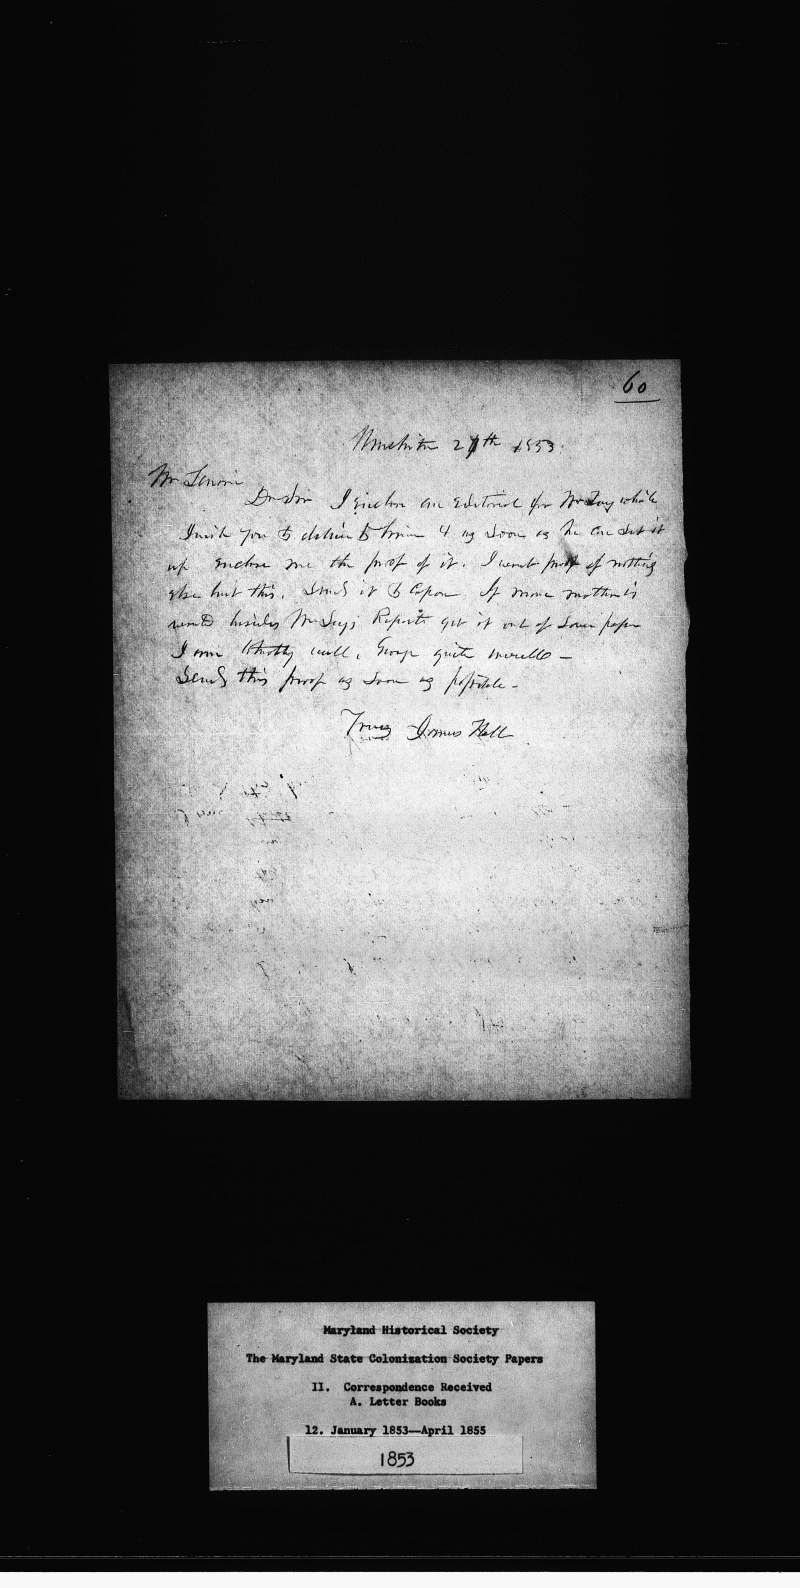 60
27th 1853
Mr
Dr Sir I enclose an Editorial for Mr
I wish you to deliver to him & as soon as he can set it
up enclose me the proof of it. I want proof of nothing
else but this. Send it to If more matter is
besides Mr Report get it out of some paper
I am well, George quite
Send this proof as soon as possible -
Truly James Hall
Maryland Historical Society
The Maryland State Colonization Society Papers
II. Correspondence Received
A. Letter Books
12. January 1853--April 1855
1853